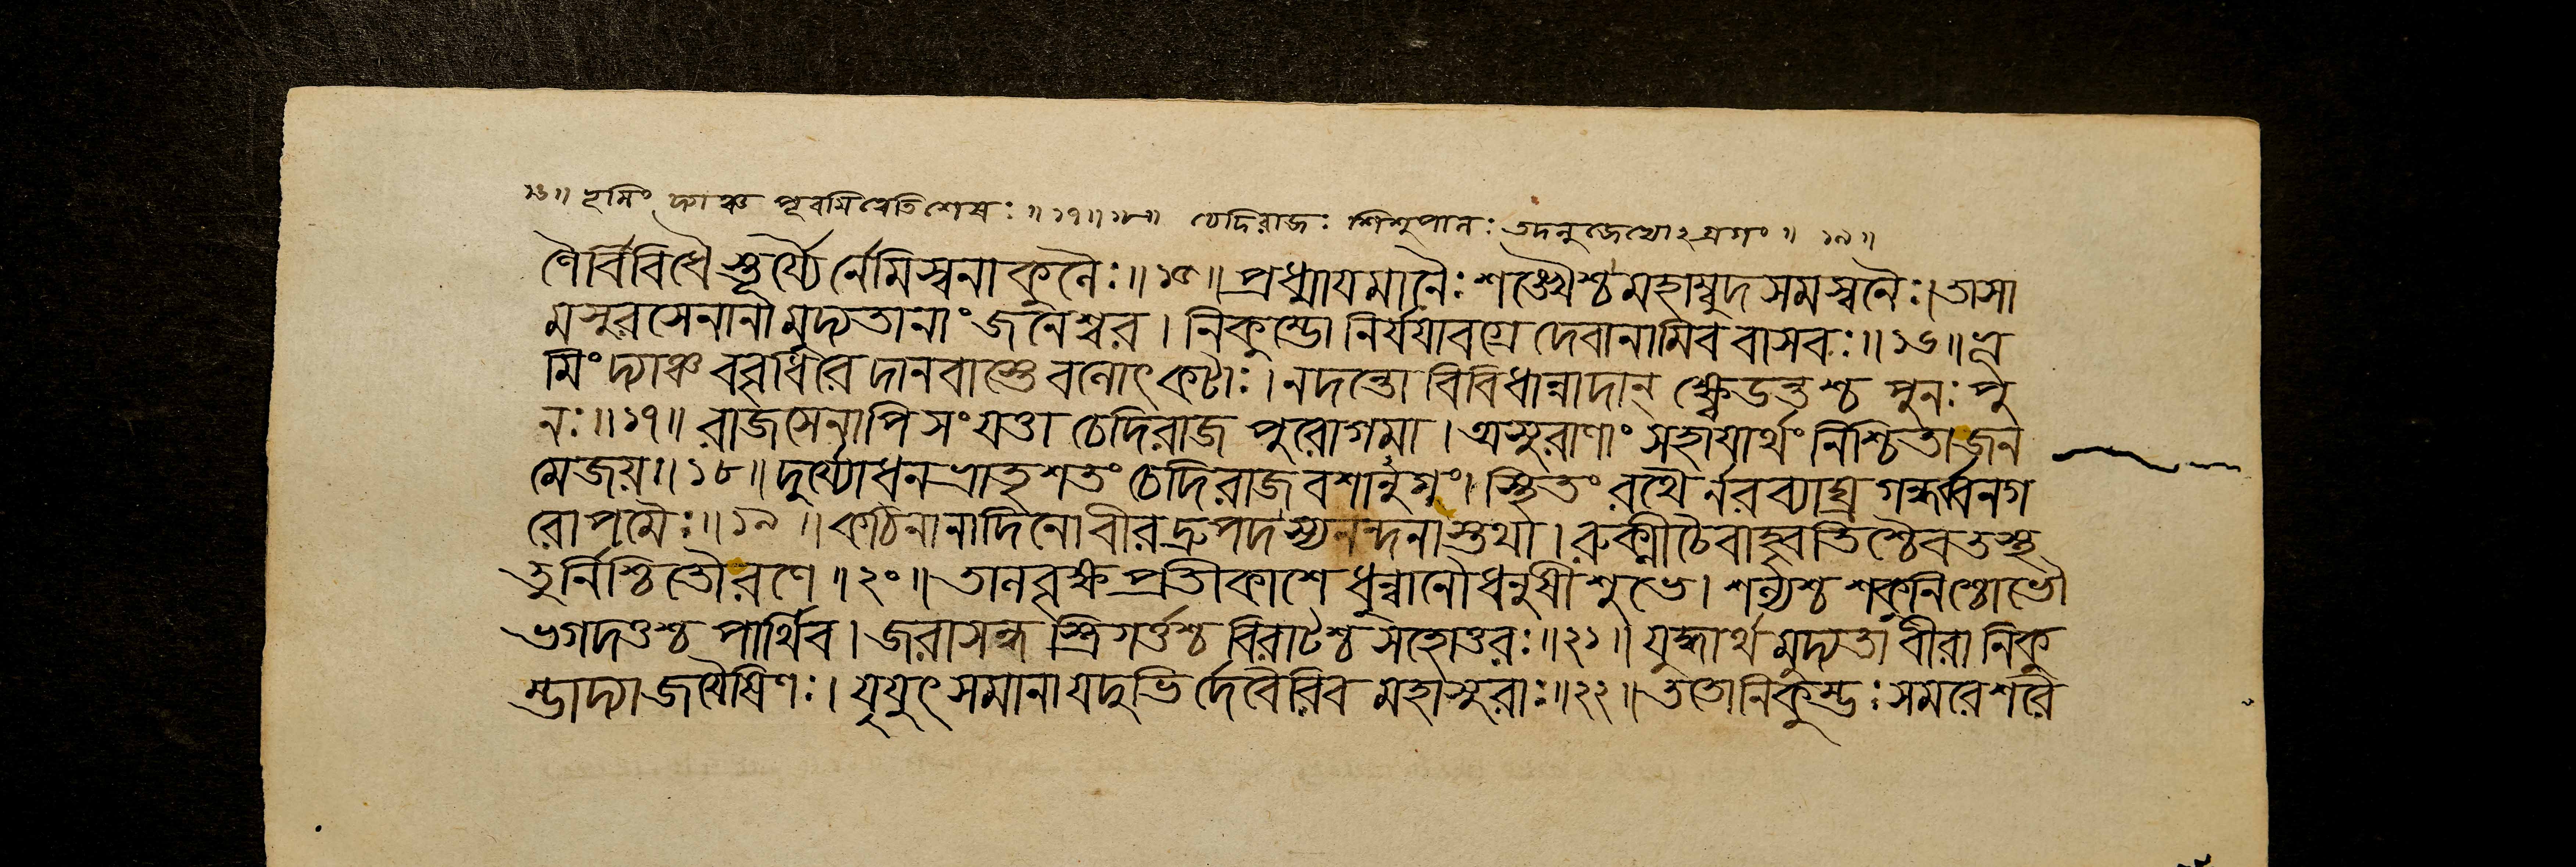 ১৬॥ ভূমিং দ্যাঞ্চ পূরয়ামিবেতিশেষঃ ॥ ১৭॥ ১৮॥ চেদিরাজঃ শিশুপালঃ তদনুজেথোঽগ্রগং ॥ ১৯॥
ণৈর্বিবিধৈস্তূর্য্যৈর্নেমিস্বনাকুলৈঃ॥১৫॥প্রধ্মায়মানৈঃ শঙ্খৈশ্চ মহাম্বুদসমস্বনৈঃ।তাসা
মসুরসেনানামুদ্যতানাং জনেশ্বর। নিকুম্ভো নির্যযাবগ্রে দেবানামিব বাসবঃ॥১৬॥ভূ
মিং দ্যাঞ্চ ববৃধিরে দানবাস্তে বলোৎকটাঃ। নদন্তো বিবিধান্নাদান্ ক্ষ্বেডন্তশ্চ পুনঃ পু
নঃ॥১৭॥ রাজসেনাপি সংযত্তা চেদিরাজ পুরোগমা। অসুরাণাং সহায়ার্থং নিশ্চিতা জন
মেজয়॥১৮॥ দুর্য্যোধনভ্রাতৃশতং চেদিরাজবশানুগং। স্থিতং রথৈর্নরব্যাঘ্র গন্ধর্ব্বনগ
রোপমৈঃ॥১৯॥ কঠিনানাদিনোবীর দ্রুপদস্য নন্দনাস্তথা। রুক্মীচৈবাহ্বতিশ্চৈব তস্থ
তুর্নিশ্চিতৌরণে॥২০॥ তালবৃক্ষপ্রতীকাশে ধুন্বানৌধনুষী শুভে। শল্যশ্চ শকুনিশ্চোভৌ
ভগদত্তশ্চ পার্থিব। জরাসন্ধস্ত্রিগর্ত্তশ্চ বিরাটশ্চ সহোত্তরঃ॥২১॥ যুদ্ধার্থমুদ্যতা বীরা নিকু
ম্ভাদ্যা জয়ৈষিণঃ। যুযুৎসমানা যদুভির্দেবৈরিব মহাসুরাঃ॥২২॥ ততোনিকুম্ভঃ সমরে শরৈ